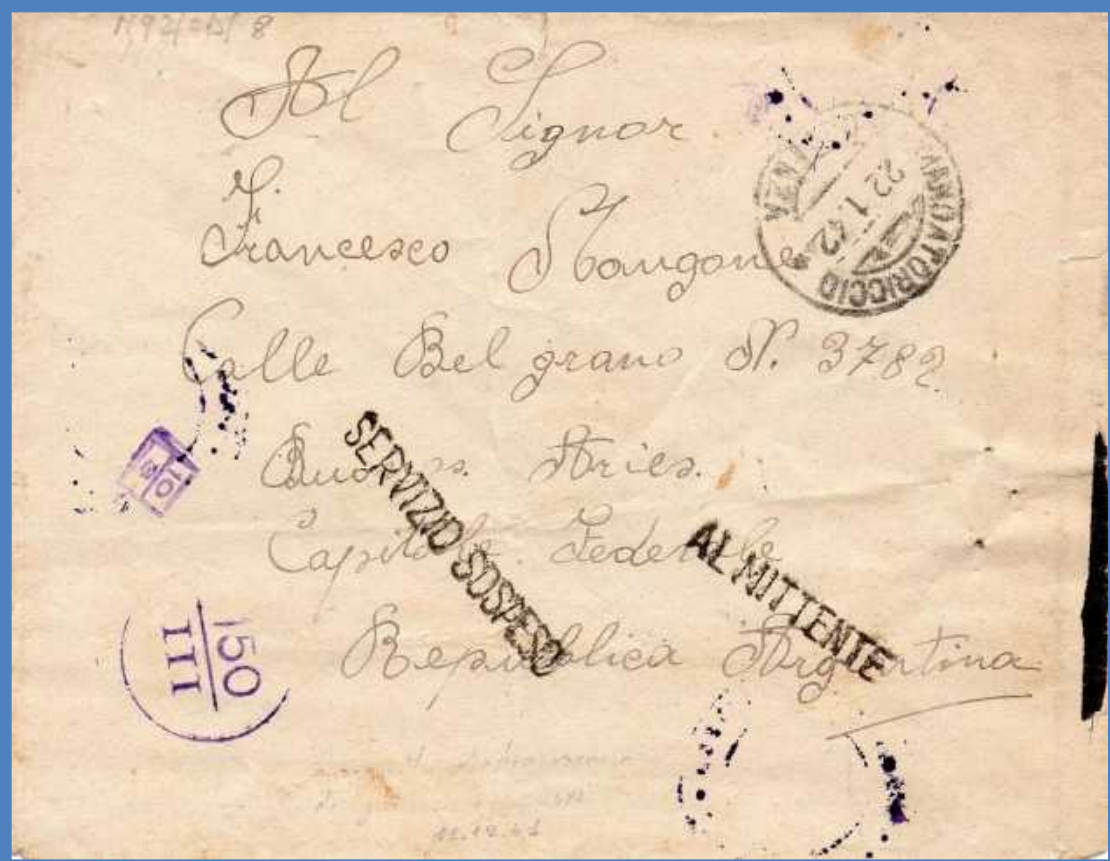 Al Signor
Francesco Mangone
Calle Belgrano N. 3782
Buenos Aries.
Capitale Federale
Republica Argentina
MANDATORICCIO
22.1.42
SERVIZIO SOSPESO
AL MITTENTE
10
150
III
11.12.41